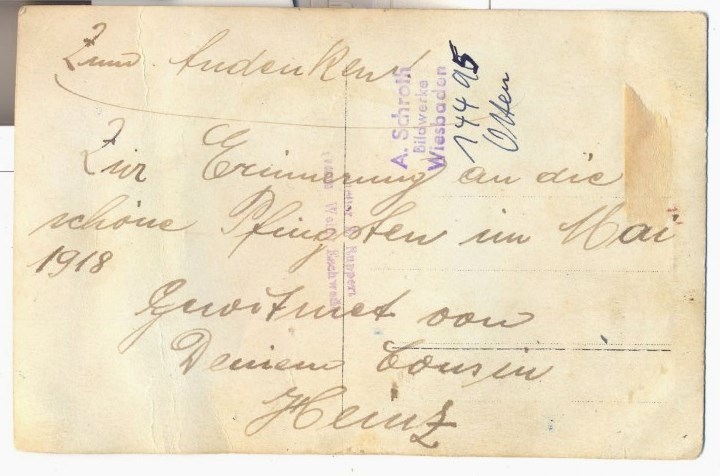 Zum Andenken!
Zür Erinnerung an die
schöne Pfingsten im Mai
1918
Gewitmet von
Deinem Cousin
Heinz
A. Schroth
Bildwerke
Wiesbaden
14495
Ruppert